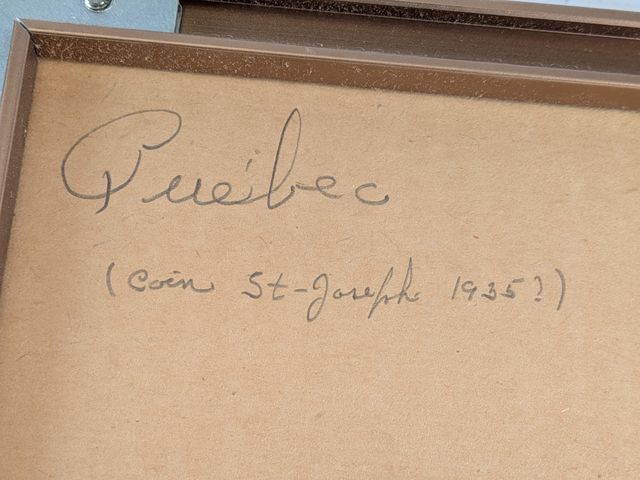 Québec
(coin St-Joseph 1935?)